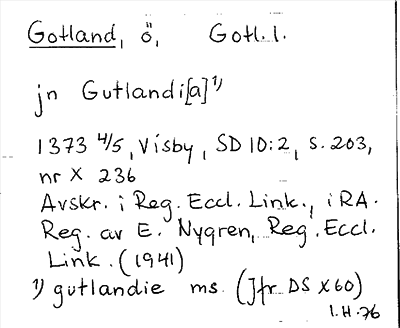 Gotland, ö, Gotl. l.
jn Gutlandi[a]¹⁾
1373 4/5, Visby, SD 10:2, s. 203,
nr X 236
Avskr. i Reg. Eccl. Link., i RA.
Reg. av E. Nygren, Reg. Eccl.
Link. (1941)
¹⁾ gutlandie ms. (Jfr DS X 60)
I.H-76